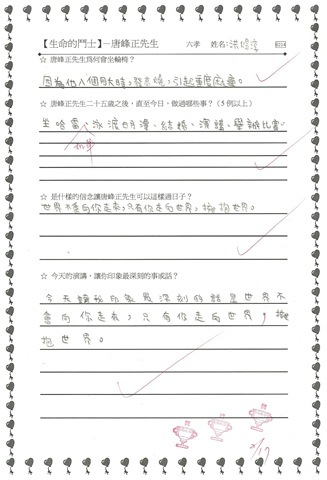 【生命的鬥士】─唐峰正先生 六孝 姓名:洪
☆ 唐峰正先生為何會坐輪椅?
因為他八個月大時,發高燒,引起重度麻痺。
☆ 唐峰正先生二十五歲之後,直至今日,做過哪些事?(5 例以上)
坐哈雷、泳渡日月潭、結婚、演講、舉辦比賽。
機車
☆ 是什樣的信念讓唐峰正先生可以這樣過日子?
世界不會向你走來,只有你走向世界,擁抱世界。
☆ 今天的演講,讓你印象最深刻的事或話?
今天讓我印象最深刻的就是世界不
會向你走來,只有你走向世界,擁
抱世界。
2/17